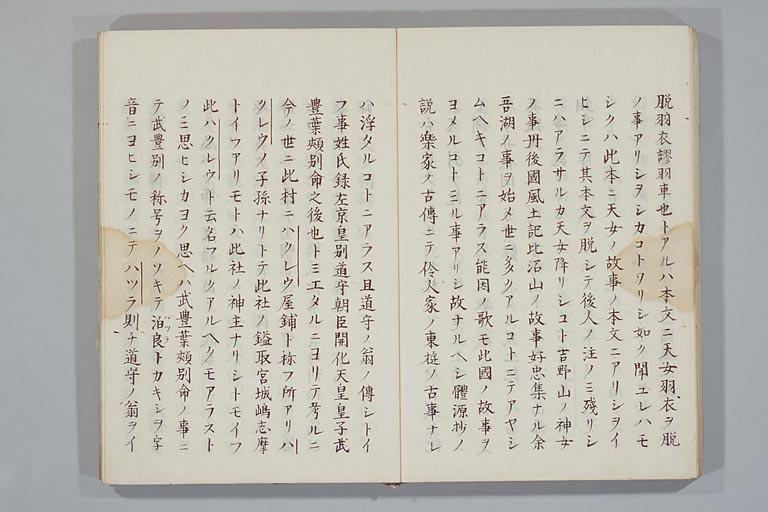 脱羽衣謬羽車也トアルハ本文ニ天女羽衣ヲ脱
ノ事アリシヲシカコトワリシ如ク聞エレハモ
シクハ此本ニ天女ノ故事ノ本文ニアリシヲイ
ヒシニテ其本文ヲ脱シテ後人ノ注ノミ残リシ
ニハアラサルカ天女降リシコト吉野山ノ神女
ノ事丹後國風土記比沼山ノ故事好忠集ナル余
吾湖ノ事ヲ始メ世ニ多クアルコトニテアヤシ
ムヘキコトニアラス能因ノ歌モ此國ノ故事ヲ
ヨメルコトミル事アリシ故ナルヘシ體源抄ノ
説ハ樂家ノ古傳ニテ伶人家ノ東遊ノ古事ナレ
ハ浮タルコトニアラス且道守ノ翁ノ傳シトイ
フ事姓氏録左京皇別道守朝臣開化天皇皇子武
豊葉頰別命之後也トミエタルニヨリテ考ルニ
今ノ世ニ此村ニハクレウ屋鋪ト称フ所アリハ
クレウノ子孫ナリトテ此社ノ鎰取宮城嶋志摩
トイフアリモトハ此社ノ神主ナリシトモイフ
此ハクレウト云名フルクアルヘクモアラスト
ノミ思ヒシカヨク思ヘハ武豊葉頰別命ノ事ニ
テ武豊別ノ称号ヲノソキテ泊良トカキシヲ字
音ニヨヒシモノニテハツラ則チ道守ノ翁ヲイ